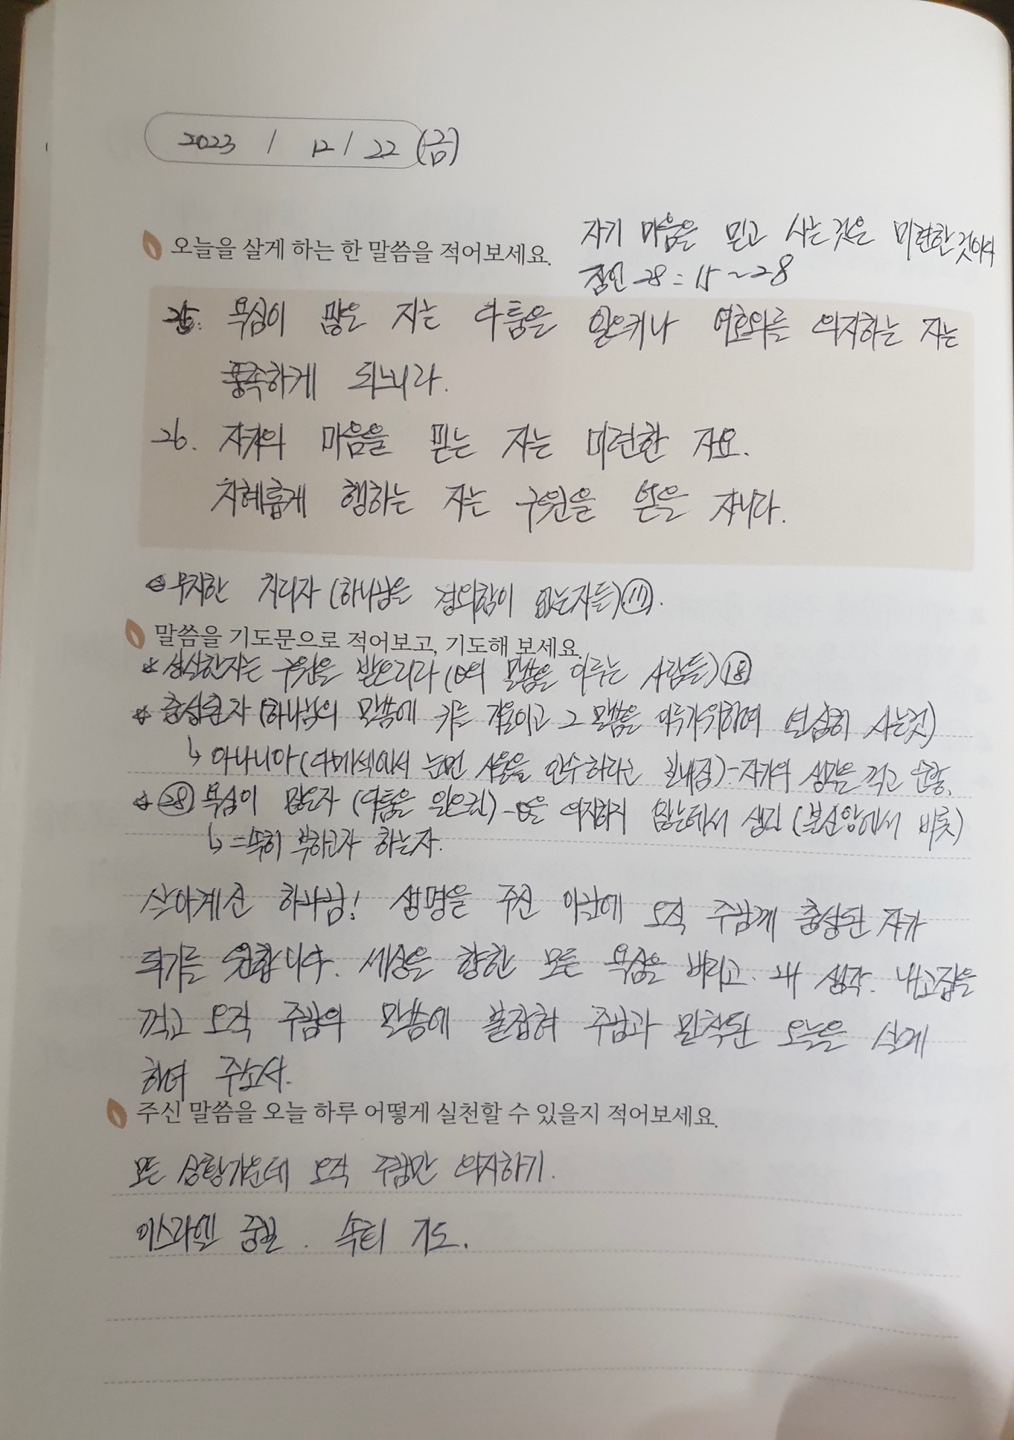 2023 / 12 / 22 (금)
자기 마음을 믿고 사는것은 미련한것이다
오늘을 살게 하는 한 말씀을 적어보세요.
잠언 28 : 15 ~ 28
25. 욕심이 많은 자는 다툼을 일으키나 여호와를 의지하는 자는
풍족하게 되느니라.
26. 자기의 마음을 믿는 자는 미련한 자요.
지혜롭게 행하는 자는 구원을 얻을 자니라.
무지한 치리자 (하나님을 경외함이 없는자들)
말씀을 기도문으로 적어보고, 기도해 보세요.
성실한자는 구원을 받으리라 (의 말씀을 이루는 사람들) 18
충성된 자 (하나님의 말씀에 귀를 기울이고 그 말씀을 이루기위하여 사는것)
↳ 아나니아 (다메섹에서 눈먼 사울을 안수하라고 보내심) - 자기의 생각을 꺾고 순종.
욕심이 많은자 (다툼을 일으킴) - 을 의지하지 않는데서 생김 (불신앙에서 비롯)
↳ = 속히 부하고자 하는자.
살아계신 하나님! 생명을 주신 이간에 오직 주님께 충성된 자가
되기를 원합니다. 세상을 향한 모든 욕심을 버리고. 내 생각. 내고집을
꺾고 오직 주님의 말씀에 붙잡혀 주님과 밀착된 오늘을 살게
하여 주소서.
주신 말씀을 오늘 하루 어떻게 실천할 수 있을지 적어보세요.
모든 상황가운데 오직 주님만 의지하기.
이스라엘 중보. 기도.